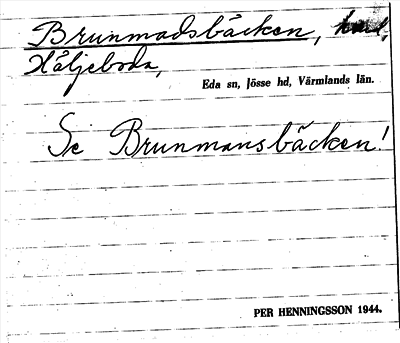 Brunmadsbäcken,
Häljeboda,
Eda sn, Jösse hd, Värmlands län.
Se Brunmansbäcken!
PER HENNINGSSON 1944.